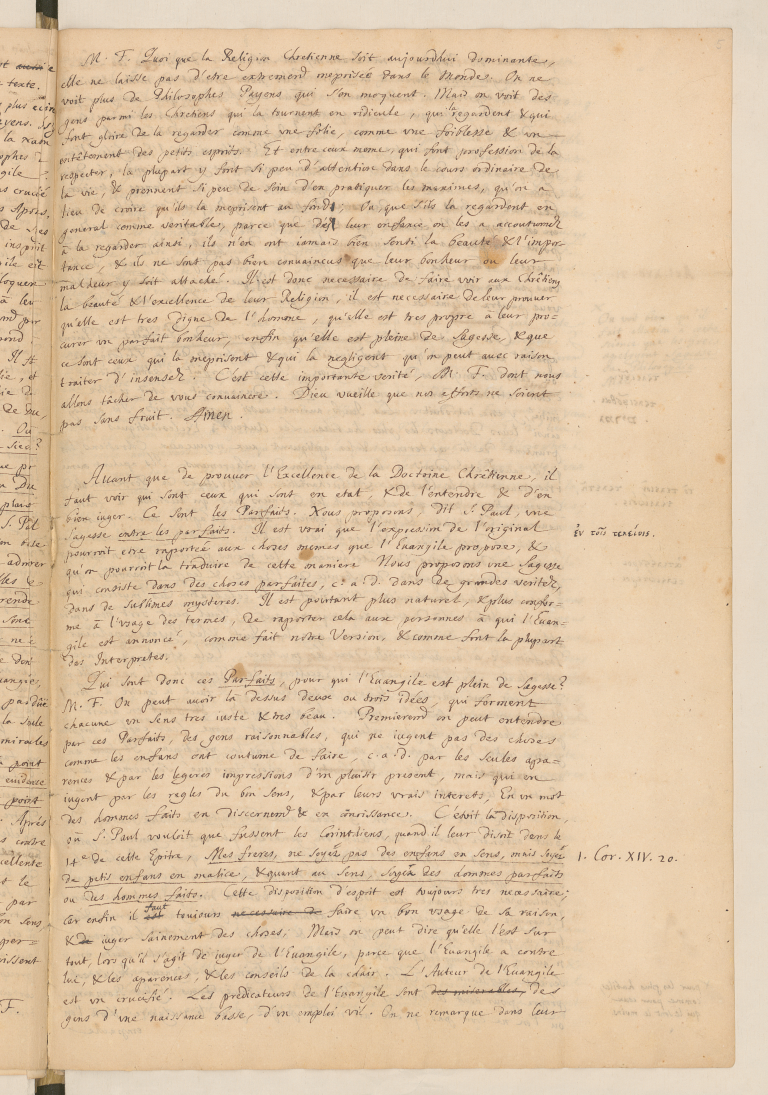 M. F. Quoi que la Religion Chretienne soit aujourdhui dominante,
elle ne laisse pas d'etre extremem.t meprisée dans le Monde. On ne
voit plus de Philosophes Payens qui s'en moquent. Mais on voit des
gens parmi les Chretiens qui la tournent en ridicule, qui la regardent & qui
font gloire de la regarder comme vne folie, comme vne foiblesse & vn
entêtement des petits esprits. Et entre ceux meme, qui font profession de la
respecter, la plupart y font si peu d'attention dans le cours ordinaire de
la vie, & prennent si peu de soin d'en pratiquer les maximes, qu'on a
lieu de croire qu'ils la meprisent au fond; Ou que s'ils la regardent en
general comme veritable, parce que dès leur enfance on les a accoutumez
à la regarder ainsi, ils n'en ont iamais bien senti la beauté & l'impor-
tance, & ils ne sont pas bien convaincus que leur bonheur ou leur
malheur y soit attaché. Il est donc necessaire de faire voir aux Chrêtiens
la beauté & l'excellence de leur Religion, il est necessaire de leur prouver
qu'elle est tres digne de l'homme, qu'elle est tres propre à leur pro-
curer vn parfait bonheur, enfin qu'elle est pleine de Sagesse, & que
ce sont ceux qui la meprisent & qui la negligent qu'on peut avec raison
traiter d'insensez. C'est cette importante verité, M. F. dont nous
allons tâcher de vous convaincre. Dieu vueille que nos efforts ne soient
pas sans fruit. Amen.
Auant que de prouuer l'Excellente de la Doctrine Chrêtienne, il
faut voir qui sont ceux qui sont en etat, & de l'entendre & d'en
bien iuger. Ce sont les Parfaits. Nous proposons, dit S. Paul, vne
Sagesse entre les parfaits. Il est vrai que l'expression de l'original
ἐν τοῖς τελείοις.
pourroit etre raportée aux choses memes que l'Euangile propose, &
qu'on pourroit la traduire de cette maniere Nous proposons vne Sagesse
qui consiste dans des choses parfaites, c. a d. dans de grandes veritez,
dans de sublimes mysteres. Il est pourtant plus naturel, & plus confor-
me à l'vsage des termes, de raporter cela aux personnes à qui l'Euan-
gile est annoncé, comme fait notre Version, & comme font la plupart
des Interpretes.
Qui sont donc ces Parfaits, pour qui l'Euangile est plein de Sagesse?
M. F. On peut avoir là dessus deux ou trois idées, qui forment
chacune vn sens tres iuste & tres beau. Premierem.t on peut entendre
par ces Parfaits, des gens raisonnables, qui ne iugent pas des choses
comme les enfans ont coutume de faire, c. a. d. par les seules apa-
rences & par les legeres impressions d'vn plaisir present, mais qui en
iugent par les regles du bon sens, & par leurs vrais interets; En vn mot
des hommes faits en discernem.t & en cônoissance. C'etoit la disposition,
où S. Paul vouloit que fussent les Corinthiens, quand il leur disoit dans le
14.e de cette Epitre, Mes freres, ne soyez pas des enfans en sens, mais soyez
1. Cor. XIV. 20.
de petis enfans en malice, & quant au sens, soyez des hommes parfaits
ou des hommes faits. Cette disposition d'esprit est toujours tres necessaire;
Car enfin il est faut toujours necessaire de faire vn bon vsage de sa raison,
& de iuger sainement des choses; Mais on peut dire qu'elle l'est sur
tout, lors qu'il s'agit de iuger de l'Euangile, parce que l'Euangile a contre
lui, & les aparences, & les conseils de la chair. L'Auteur de l'Euangile
est vn crucifié. Les predicateurs de l'Euangile sont des miserables, des
gens d'vne naissance basse, d'vn emploi vil. On ne remarque dans leur